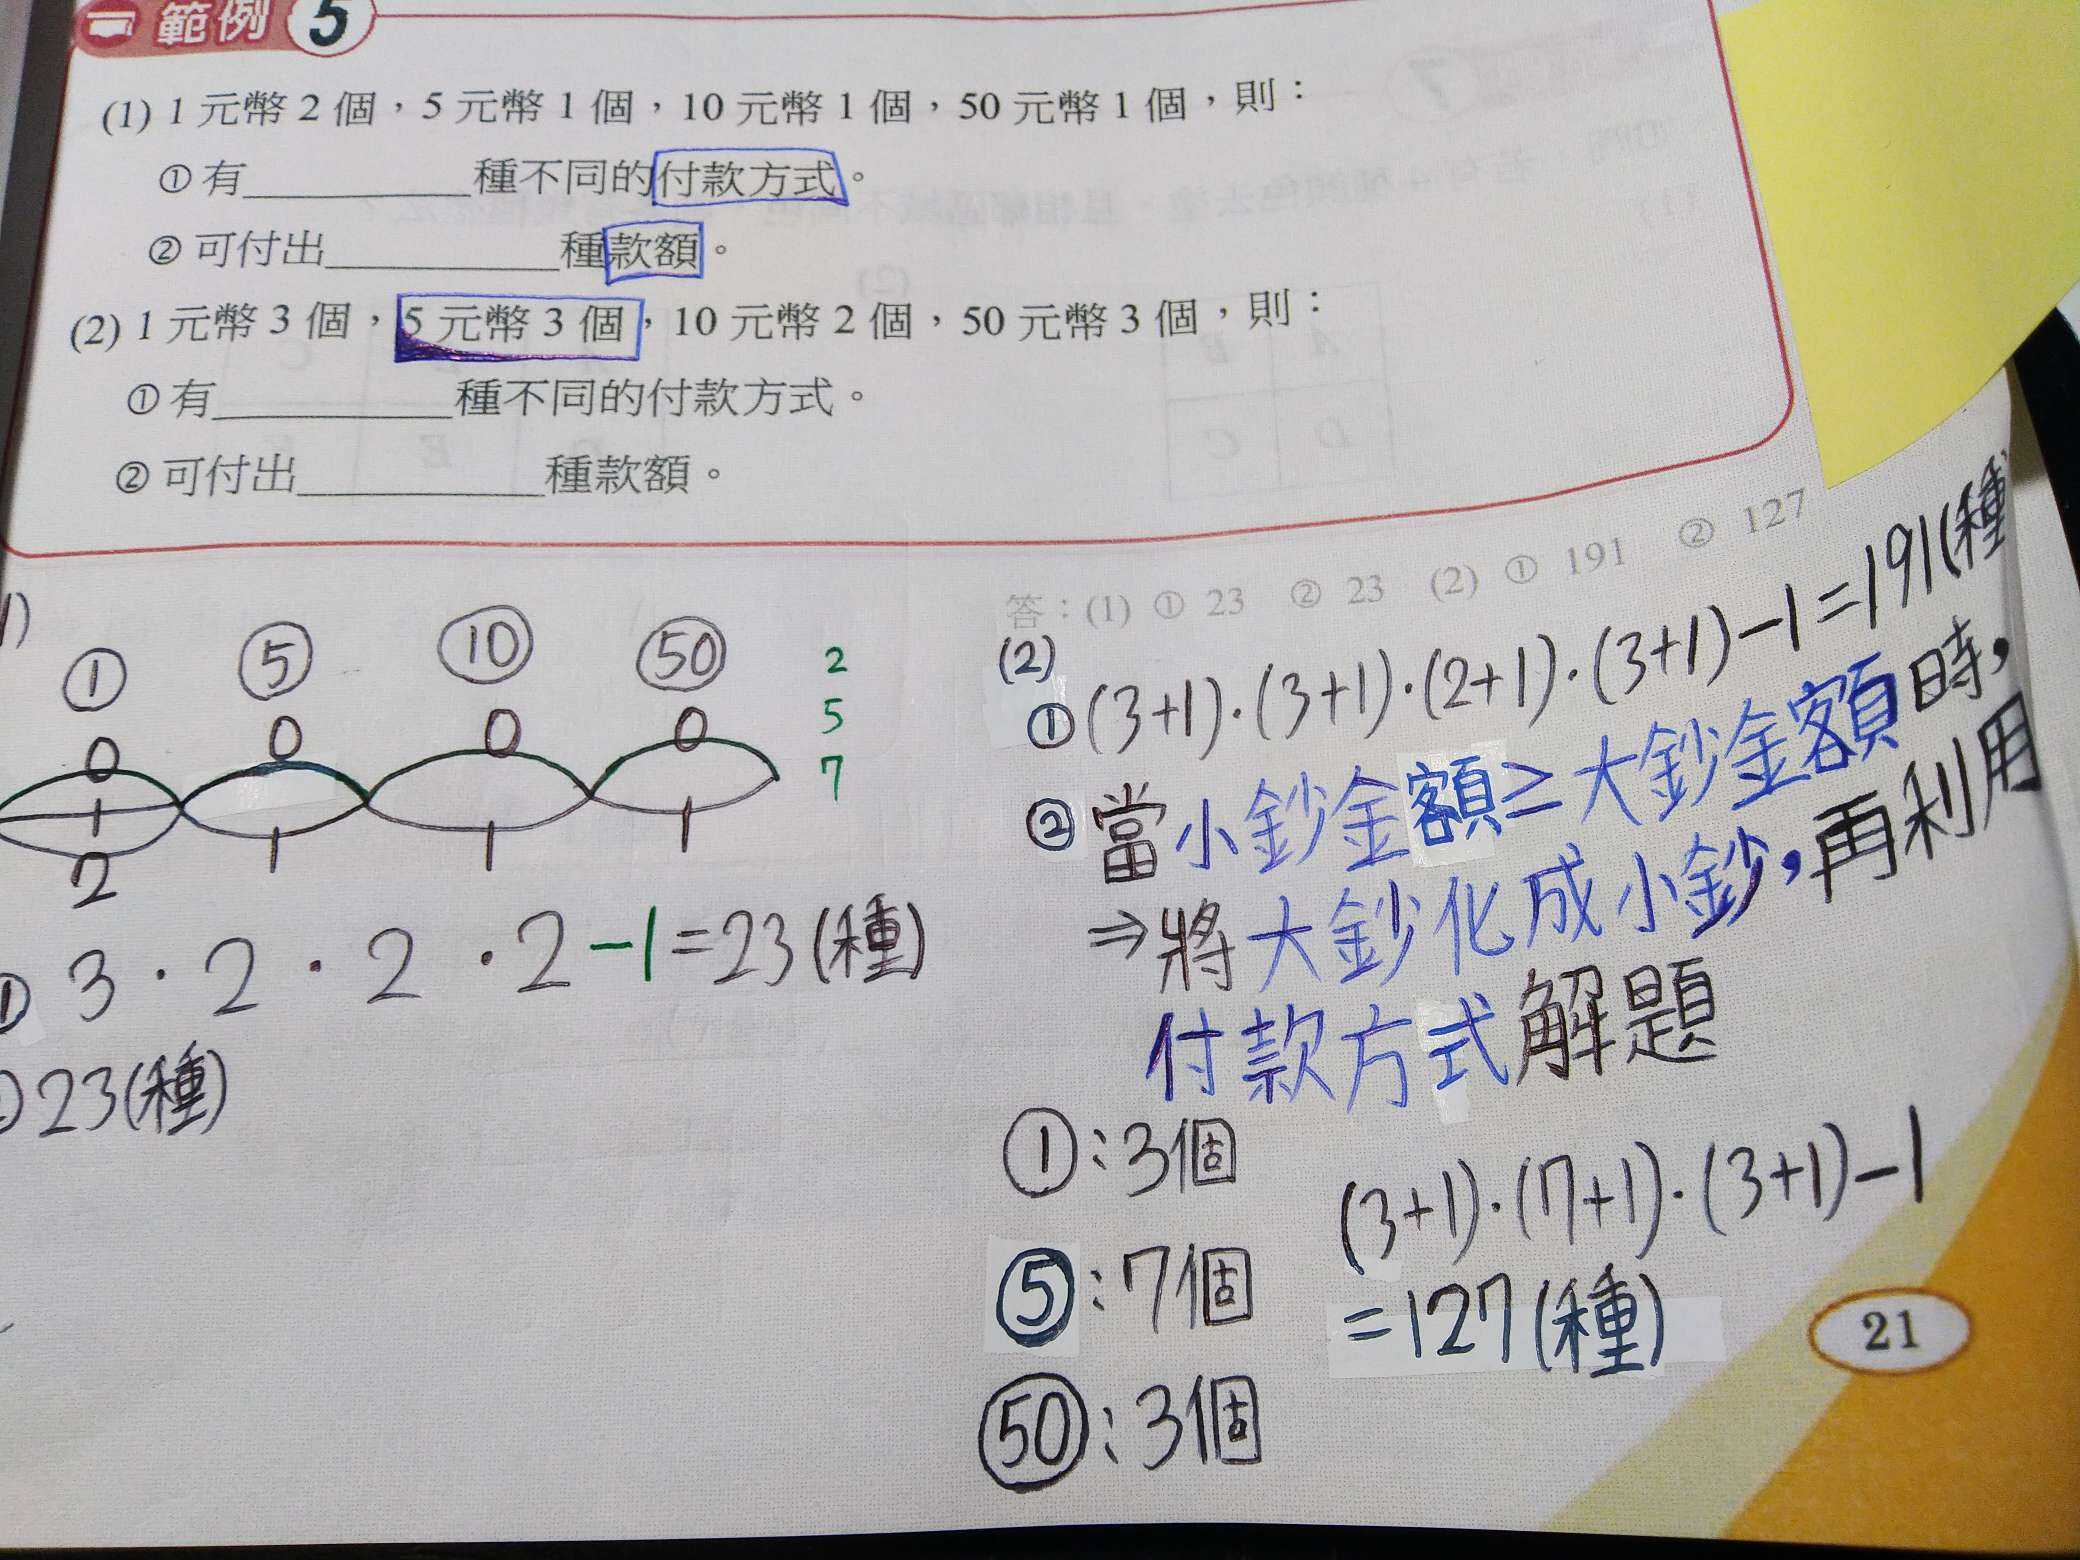 範例 5
(1) 1 元幣 2 個，5 元幣 1 個，10 元幣 1 個，50 元幣 1 個，則：
① 有__________種不同的付款方式。
② 可付出__________種款額。
(2) 1 元幣 3 個，5 元幣 3 個，10 元幣 2 個，50 元幣 3 個，則：
① 有__________種不同的付款方式。
② 可付出__________種款額。
答：(1) ① 23 ② 23 (2) ① 191 ② 127
1)
① ⑤ ⑩ ㊿
0 0 0 0
1 1 1 1
2
2
5
7
① 3 · 2 · 2 · 2 -1 = 23 (種)
23 (種)
(2)
① (3+1)·(3+1)·(2+1)·(3+1)-1=191(種
② 當小鈔金額≥大鈔金額時，
⇒將大鈔化成小鈔，再利用
付款方式解題
①：3個
⑤：7個
㊿：3個
(3+1)·(7+1)·(3+1)-1
=127(種)
21